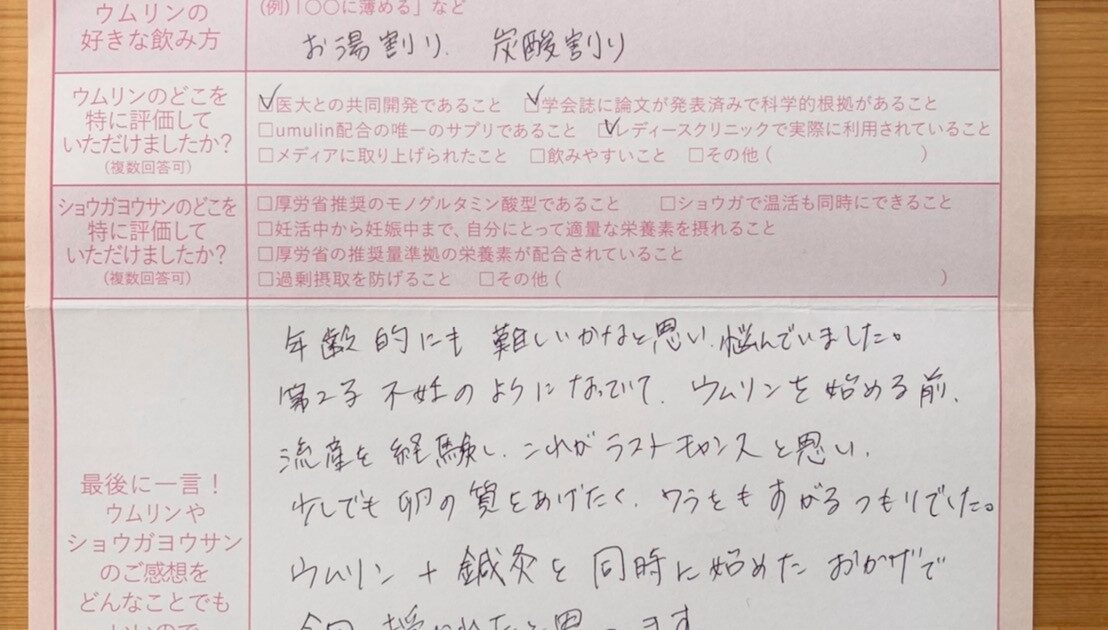 ウムリンの
好きな飲み方
(例)「〇〇に薄める」など
お湯割り. 炭酸割り
ウムリンのどこを
特に評価して
いただけましたか?
(複数回答可)
☑医大との共同開発であること ☑学会誌に論文が発表済みで科学的根拠があること
□umulin配合の唯一のサプリであること ☑レディースクリニックで実際に利用されていること
□メディアに取り上げられたこと □飲みやすいこと □その他( )
ショウガヨウサンのどこを
特に評価して
いただけましたか?
(複数回答可)
□厚労省推奨のモノグルタミン酸型であること □ショウガで温活も同時にできること
□妊活中から妊娠中まで、自分にとって適量な栄養素を摂れること
□厚労省の推奨量準拠の栄養素が配合されていること
□過剰摂取を防げること □その他( )
最後に一言!
ウムリンや
ショウガヨウサン
のご感想を
どんなことでも
いいので
年齢的にも 難しいかなと思い、悩んでいました。
第2子 不妊のようになっていて、ウムリンを始める前、
流産を経験し、これがラストチャンスと思い、
少しでも卵の質をあげたく、ワラをもすがるつもりでした。
ウムリン + 鍼灸を同時に始めたおかげで
今回 授かれたと思います